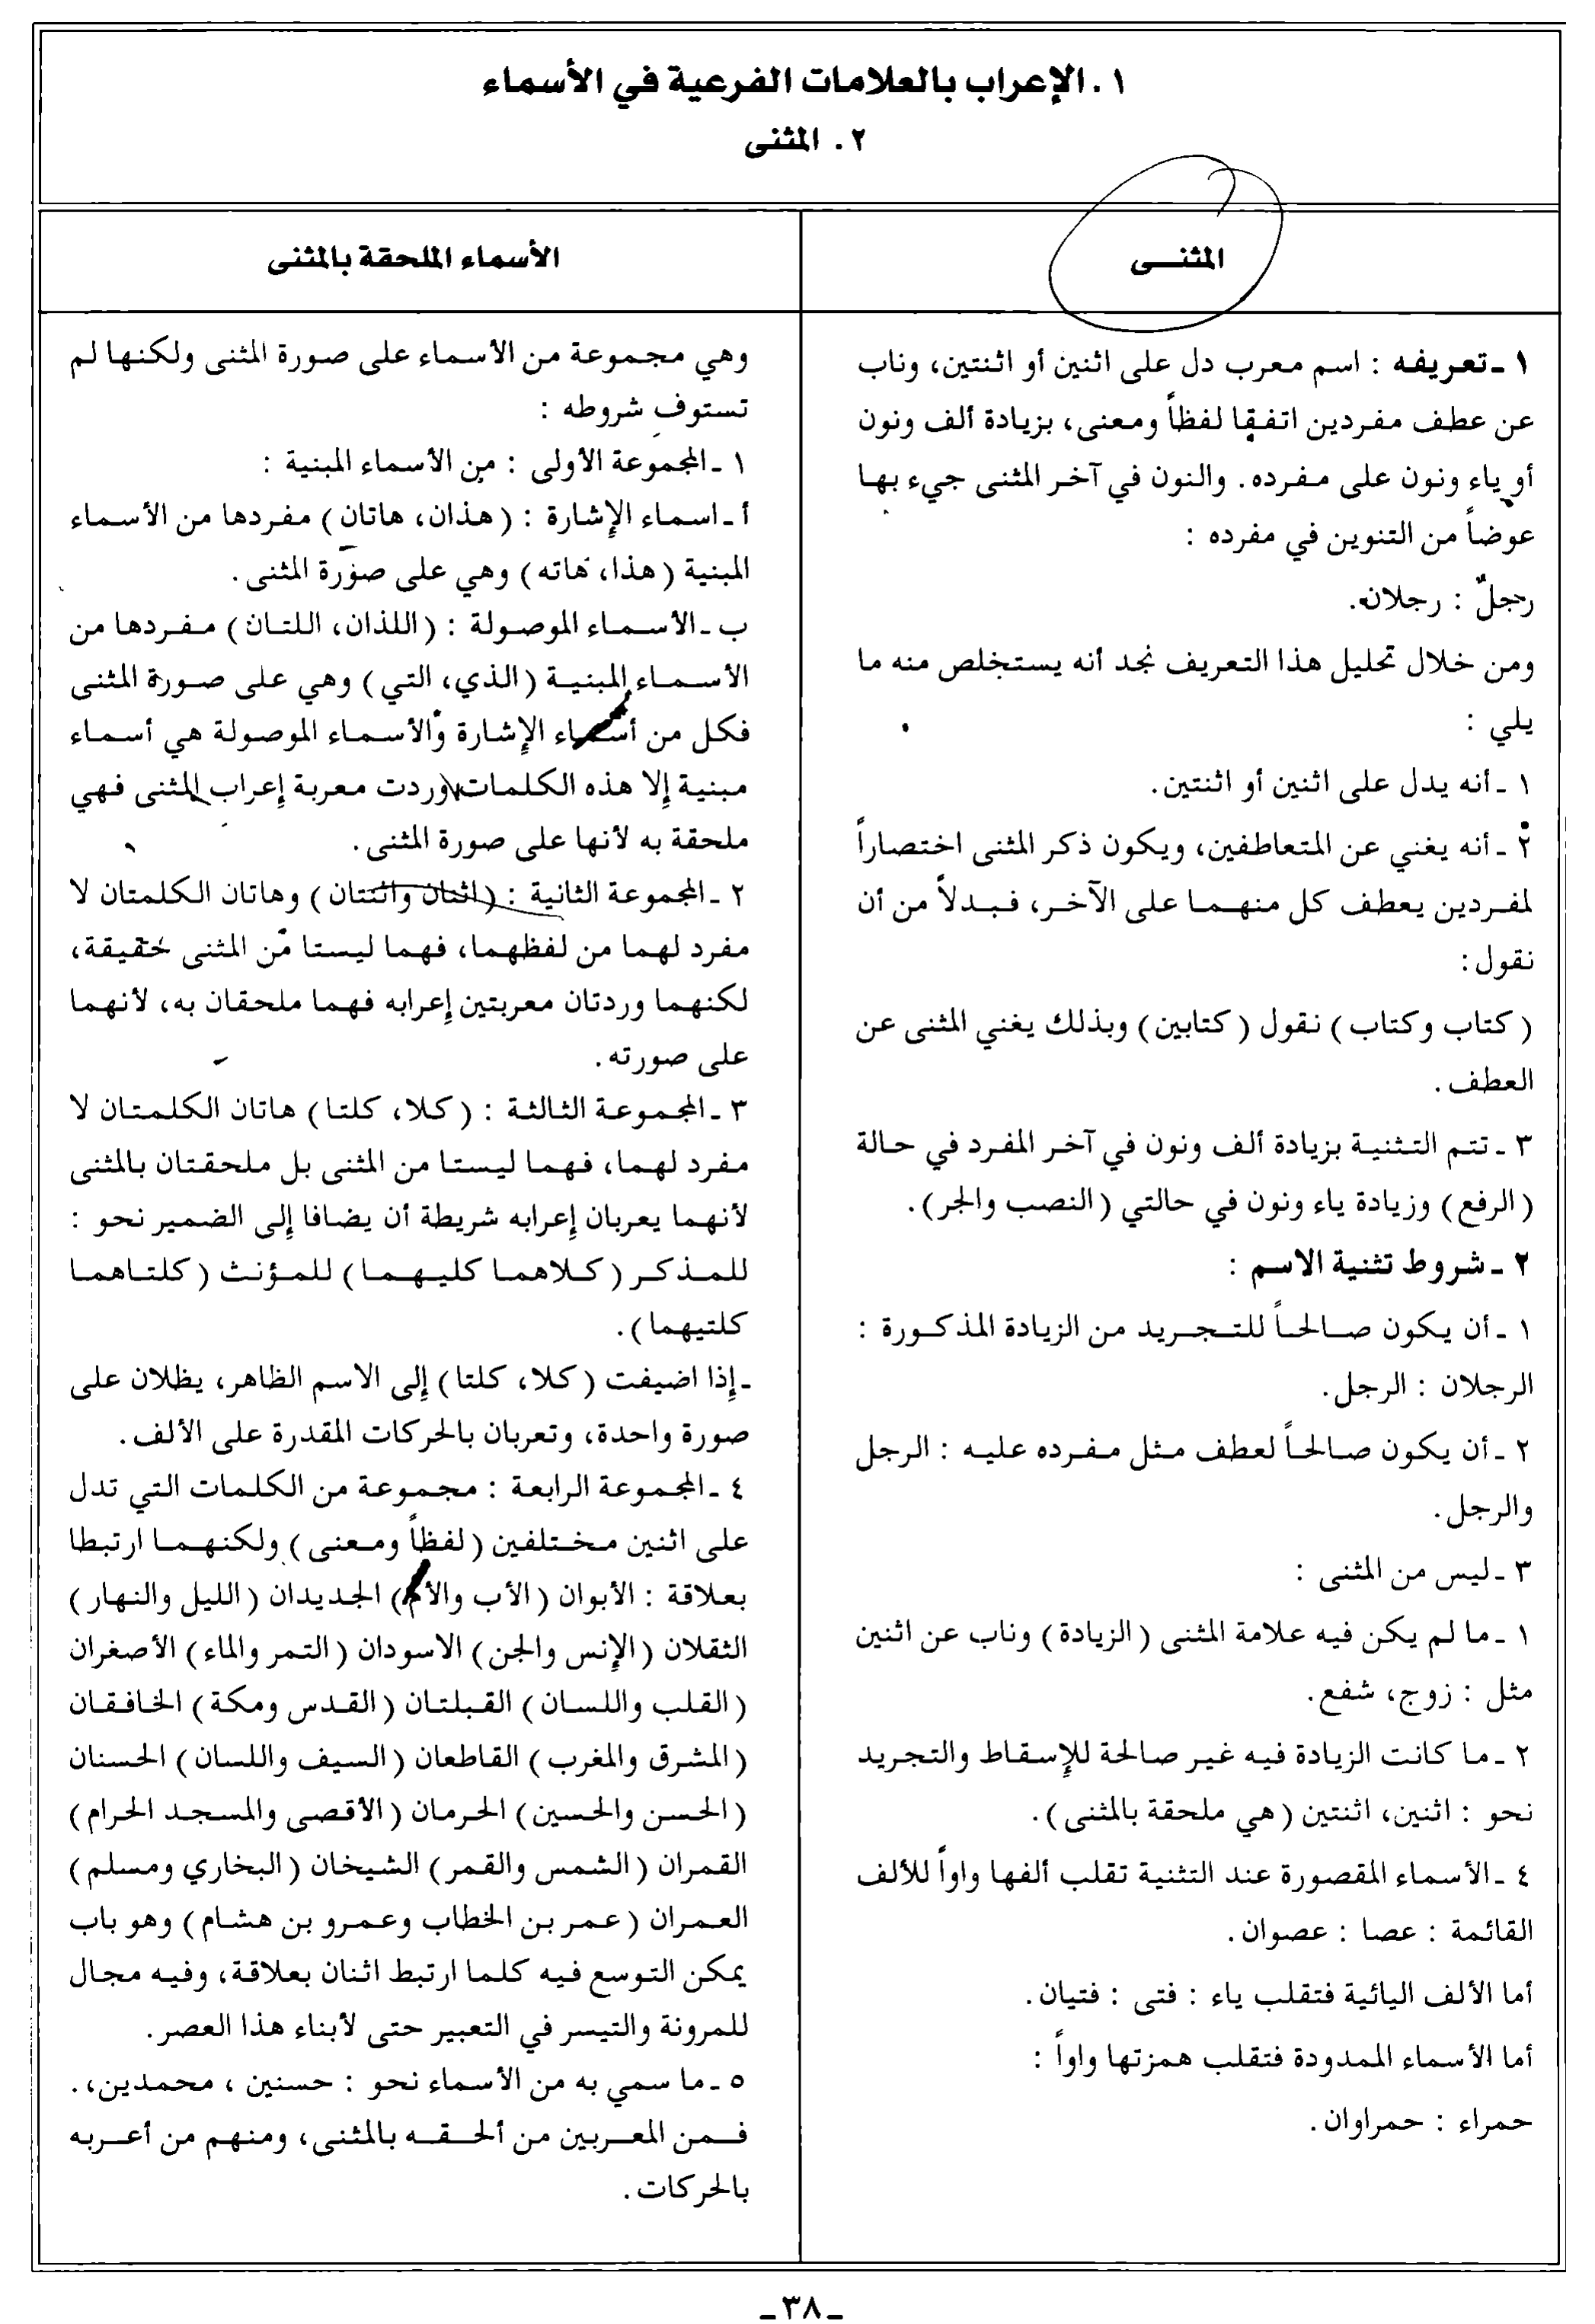 ١ . الإعراب بالعلامات الفرعية في الأسماء
٢ . المثنى
المثنــى
١ ـ تعريفه : اسم معرب دل على اثنين أو اثنتين، وناب
عن عطف مفردين اتفقا لفظاً ومعنى، بزيادة ألف ونون
أو ياء ونون على مفرده. والنون في آخر المثنى جيء بها
عوضاً من التنوين في مفرده :
رجلٌ : رجلان.
ومن خلال تحليل هذا التعريف نجد أنه يستخلص منه ما
يلي :
١ ـ أنه يدل على اثنين أو اثنتين.
٢ ـ أنه يغني عن المتعاطفين، ويكون ذكر المثنى اختصاراً
لمفردين يعطف كل منهما على الآخر، فبدلاً من أن
نقول:
( كتاب وكتاب ) نقول ( كتابين ) وبذلك يغني المثنى عن
العطف .
٣ ـ تتم التثنية بزيادة ألف ونون في آخر المفرد في حالة
( الرفع ) وزيادة ياء ونون في حالتي ( النصب والجر ) .
٢ ـ شروط تثنية الاسم :
١ ـ أن يكون صالحاً للتجريد من الزيادة المذكورة :
الرجلان : الرجل.
٢ ـ أن يكون صالحاً لعطف مثل مفرده عليه : الرجل
والرجل.
٣ ـ ليس من المثنى :
١ ـ ما لم يكن فيه علامة المثنى ( الزيادة ) وناب عن اثنين
مثل : زوج، شفع.
٢ ـ ما كانت الزيادة فيه غير صالحة للإسقاط والتجريد
نحو : اثنين، اثنتين ( هي ملحقة بالمثنى ) .
٤ ـ الأسماء المقصورة عند التثنية تقلب ألفها واواً للألف
القائمة : عصا : عصوان.
أما الألف اليائية فتقلب ياء : فتى : فتيان.
أما الأسماء الممدودة فتقلب همزتها واواً :
حمراء : حمراوان.
الأسماء الملحقة بالمثنى
وهي مجموعة من الأسماء على صورة المثنى ولكنها لم
تستوف شروطه :
١ ـ المجموعة الأولى : من الأسماء المبنية :
أ ـ اسماء الإشارة : ( هذان، هاتان ) مفردها من الأسماء
المبنية ( هذا، هاته ) وهي على صورة المثنى.
ب ـ الأسماء الموصولة : ( اللذان، اللتان ) مفردها من
الأسماء المبنية ( الذي، التي ) وهي على صورة المثنى
فكل من أسماء الإشارة والأسماء الموصولة هي أسماء
مبنية إلا هذه الكلمات وردت معربة إعراب المثنى فهي
ملحقة به لأنها على صورة المثنى.
٢ ـ المجموعة الثانية : ( اثنان واثنتان ) وهاتان الكلمتان لا
مفرد لهما من لفظهما، فهما ليستا من المثنى حقيقة،
لكنهما وردتان معربتين إعرابه فهما ملحقان به، لأنهما
على صورته.
٣ ـ المجموعة الثالثة : ( كلا، كلتا ) هاتان الكلمتان لا
مفرد لهما، فهما ليستا من المثنى بل ملحقتان بالمثنى
لأنهما يعربان إعرابه شريطة أن يضافا إلى الضمير نحو :
للمذكر ( كلاهما كليهما ) للمؤنث ( كلتاهما
كلتيهما ) .
ـ إذا اضيفت ( كلا، كلتا ) إلى الاسم الظاهر، يظلان على
صورة واحدة، وتعربان بالحركات المقدرة على الألف.
٤ ـ المجموعة الرابعة : مجموعة من الكلمات التي تدل
على اثنين مختلفين ( لفظاً ومعنى ) ولكنهما ارتبطا
بعلاقة : الأبوان ( الأب والأم ) الجديدان ( الليل والنهار )
الثقلان ( الإنس والجن ) الاسودان ( التمر والماء ) الأصغران
( القلب واللسان ) القبلتان ( القدس ومكة ) الخافقان
( المشرق والمغرب ) القاطعان ( السيف واللسان ) الحسنان
( الحسن والحسين ) الحرمان ( الأقصى والمسجد الحرام )
القمران ( الشمس والقمر ) الشيخان ( البخاري ومسلم )
العمران ( عمر بن الخطاب وعمرو بن هشام ) وهو باب
يمكن التوسع فيه كلما ارتبط اثنان بعلاقة، وفيه مجال
للمرونة والتيسر في التعبير حتى لأبناء هذا العصر.
٥ ـ ما سمي به من الأسماء نحو : حسنين ، محمدين، .
فمن المعربين من ألحقه بالمثنى، ومنهم من أعربه
بالحركات.
ـ ٣٨ ـ